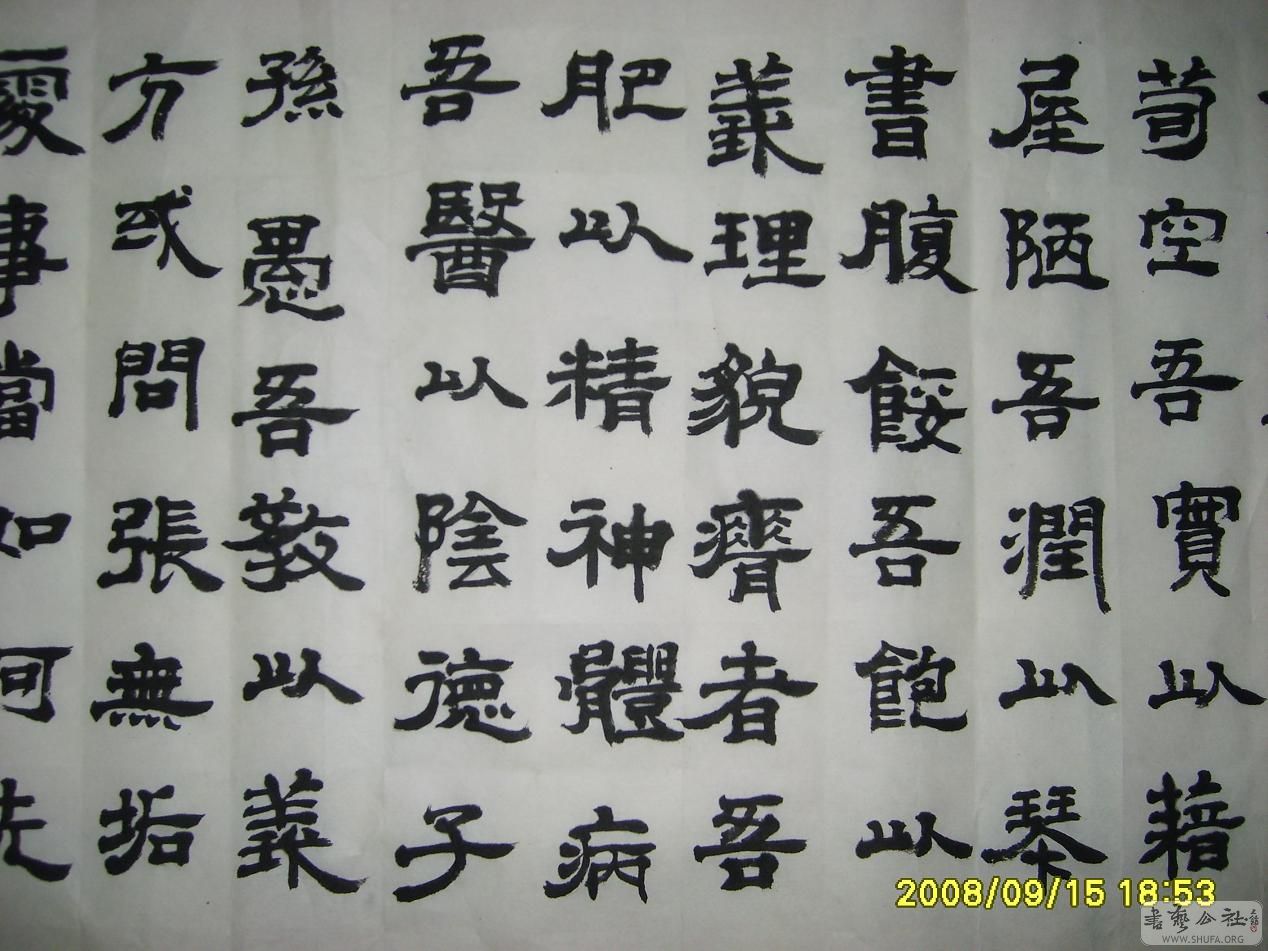 荀空吾實以藉
屋陋吾潤以琴
書腹餒吾飽以
義理貌瘠者吾
肥以精神體病
吾醫以陰德子
孫愚吾教以義
方或問張無垢
事當如何先
2008/09/15 18:53
書藝公社
WWW.SHUFA.ORG